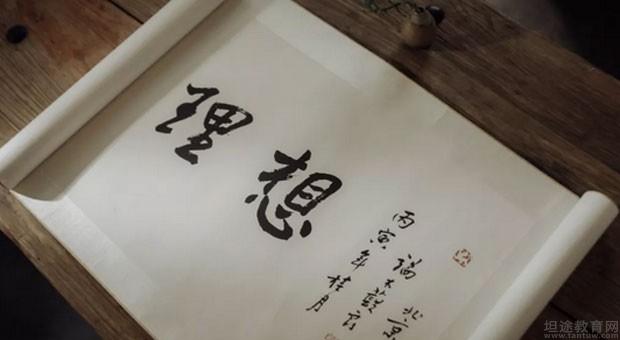 理想
丙寅年桂月
端木蕻良
北京
坦途教育网
www.tantuw.com